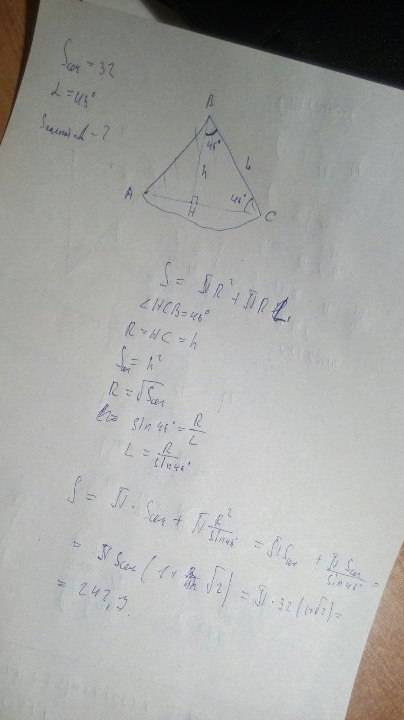 Sсеч = 32
L = 45°
Sполной - ?
B
45°
h
L
45°
A
H
C
S = ПR² + ПRL
∠HCB = 45°
R = HC = h
Sсеч = h²
R = √Sсеч
sin 45° = R/L
L = R/sin 45°
S = П · Sсеч + П R²/sin 45° = ПSсеч + ПSсеч/sin 45° =
= ПSсеч (1 + √2) = П · 32 (1+√2) =
= 242,9